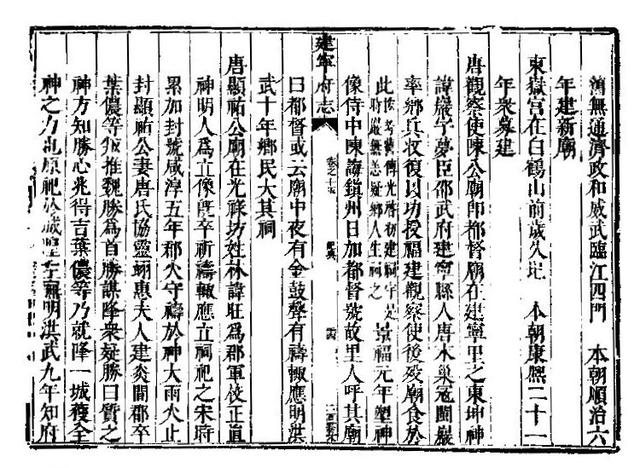 無通濟政和威武臨江四門　本朝順治六
年建新廟
東嶽宮在白鶴山前歲久圮　本朝康熙二十一
年衆募建
唐觀察使陳公廟即都督廟在建寧里之東坤神
諱巖字夢臣邵武府建寧縣人唐末巢冦閩巖
率鄉兵收復以功授福建觀察使後歿廟食於
此　傳光啓初建祠　是
時巖無恙疑鄉人生祠之
景福元年塑神
像侍中陳誨鎮州日加都督號故里人呼其廟
建寧府志　卷之十五　祀典
曰都督或云廟中夜有金鼓聲有禱輙應明洪
武十年鄉民大其祠
唐顯祐公廟在光祿坊姓林諱為郡軍校正直
神明人為立像旣卒祈禱輙應立祠祀之宋時
累加封號咸淳五年郡火守禱於神大雨火止
封顯祐公妻唐氏協靈翊惠夫人建炎間郡卒
葉儂等叛推魏勝為首勝謀降衆疑勝曰質之
神方知勝心兆得吉葉儂等乃就降一城獲全
神之力也原祀於城隍左廡明洪武九年知府